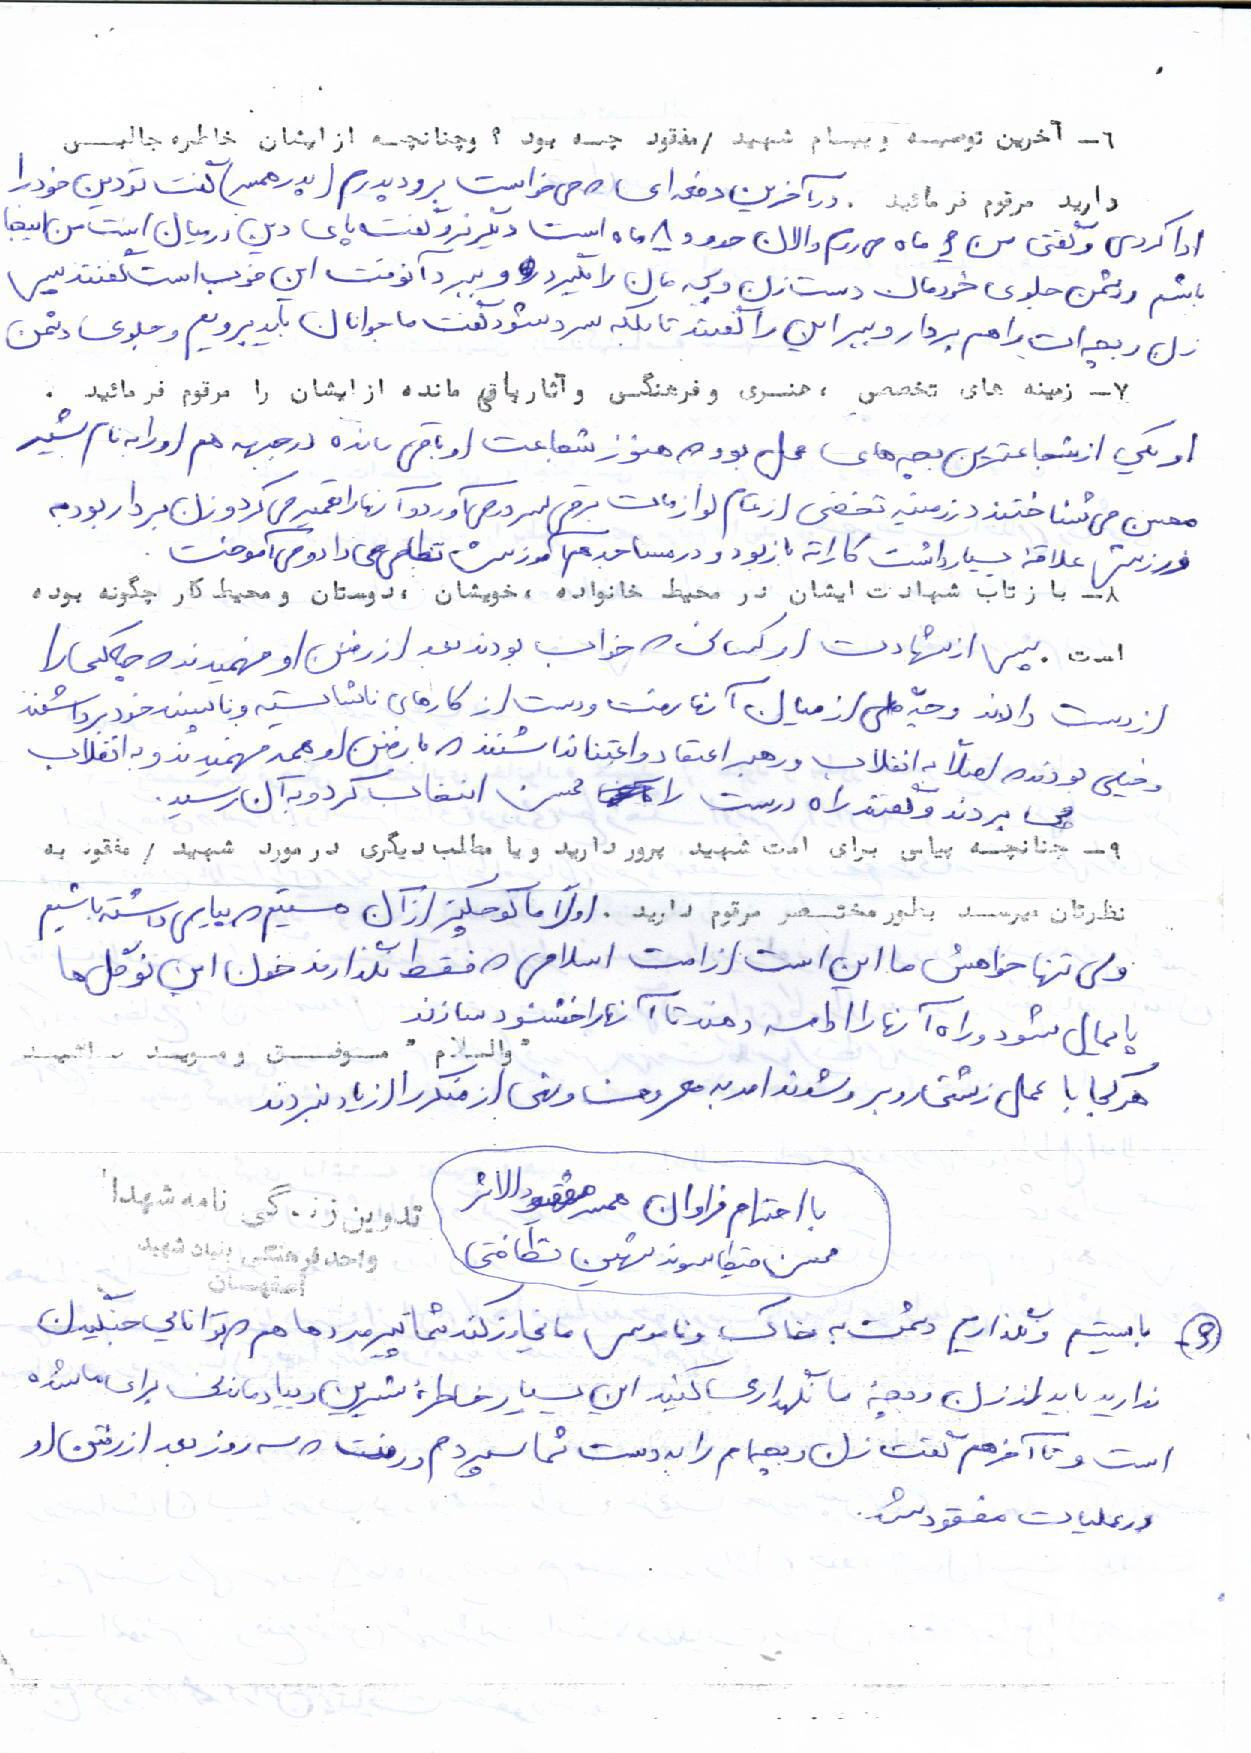 ٦ـ آخرین توصیه و پیام شهید /مفقود چه بود ؟ وچنانچه از ایشان خاطره جالبی
دارید مرقوم فرمائید . درآخرین دفعه‌ای که می‌خواست برود پدرم (پدر همسر) گفت تو دین خود را
ادا کردی و گفتی من ۶ ماه می‌روم والان حدود ۸ ماه است دیگر نرو گفت پای دین در میان است من اینجا
باشم و دشمن جلوی خودمان دست زن و بچه مان را بگیرد و ببرد آنوقت این خوب است گفتند پس
زن و بچه‌ات را هم بردار و ببر این را گفتند تا بلکه سرد شود گفت ما جوانان باید برویم و جلوی دشمن
۷ـ زمینه های تخصصی ، هنری و فرهنگی و آثار باقی مانده از ایشان را مرقوم فرمائید .
او یکی از شجاعترین بچه‌های محل بود که هنوز شجاعت او باقی مانده در جبهه هم او را به نام بشیر
محسن می‌شناختند در زمینه تخصصی از تمام لوازمات برقی سر در می‌آورد و آنها را تعمیر می‌کرد و زن بردار بود به
ورزش علاقه بسیار داشت کاراته باز بود و در مساجد هم آموزش نظامی می‌داد و می‌آموخت .
۸ـ با زتاب شهادت ایشان در محیط خانواده ، خویشان ، دوستان و محیط کار چگونه بوده
است . پس از شهادت او کسانی که خواب بودند بعد از رفتن او فهمیدند که چه کسی را
از دست دادند و چه گلی از میان آنها رفت و دست از کارهای ناشایسته و ناپسند خود برداشتند
و خیلی بودند که اصلاً به انقلاب و رهبر اعتقاد و اعتنا نداشتند که با رفتن او همه فهمیدند و به انقلاب
پی بردند و گفتند راه درست را محسن انتخاب کرد و به آن رسید.
۹ـ چنانچه پیامی برای امت شهید پرور دارید و یا مطالب دیگری در مورد شهید / مفقود به
نظرتان میرسد بطور مختصر مرقوم دارید . اولاً ما کوچکتر از آن هستیم که پیامی داشته باشیم
ولی تنها خواهش ما این است از امت اسلامی که فقط نگذارند خون این نوگل‌ها
پایمال شود و راه آنها را ادامه دهند تا آنها را خشنود سازند
" والسلام " موفق و موید باشید
هر کجا با عمل زشتی روبرو شدند امر به معروف و نهی از منکر را از یاد نبردند
با احترام فراوان همسر مفقودالاثر
محسن شهین نظافتی
تدوین زندگی نامه شهدا
واحد فرهنگی بنیاد شهید
اصفهان
بایستیم و نگذاریم دشمن به خاک و ناموس ما تجاوز کند شما پیرمردها هم که توانایی جنگیدن
ندارید باید از زن و بچه ما نگهداری کنید این بسیار خاطرهٔ شیرین و بیادماندنی برای ما شده
است و تا آخر هم گفت زن و بچه‌ام را به دست شما سپردم و رفت که سه روز بعد از رفتن او
در عملیات مفقود شد.